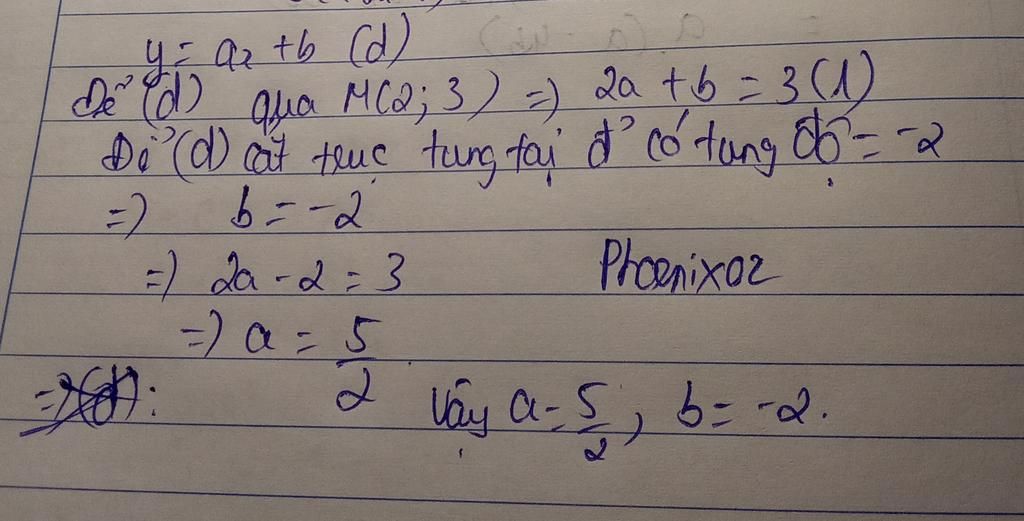 y = ax + b (d)
Để (d) qua M(2; 3) => 2a + b = 3 (1)
Để (d) cắt trục tung tại đ' có tung độ = -2
=> b = -2
=> 2a - 2 = 3
Phoenixoz
=> a = 5/2
Vậy a = 5/2, b = -2.